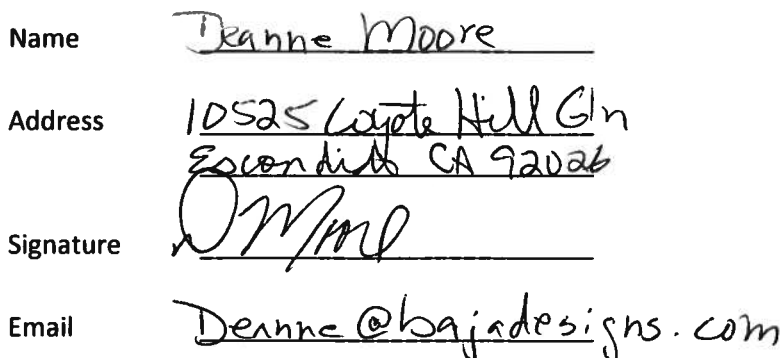 Name Deanne Moore
Address 10525 Coyote Hill Gln
Escondido CA 92026
Signature DMoore
Email Deanne@bajadesigns.com